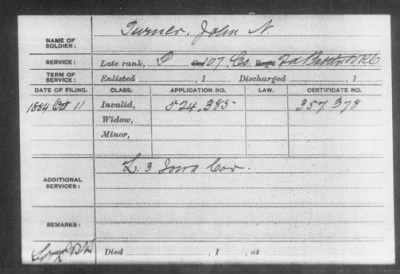 NAME OF SOLDIER: Turner, John N.
SERVICE: Late rank, 107 Co. 2d
TERM OF SERVICE: Enlisted , 1 Discharged , 1
DATE OF FILING. CLASS. APPLICATION NO. LAW. CERTIFICATE NO.
1884 Oct 11 Invalid, 524,385 357,378
Widow,
Minor,
ADDITIONAL SERVICES: L. 3 Iowa Cav.
REMARKS:
Died , 1 , at